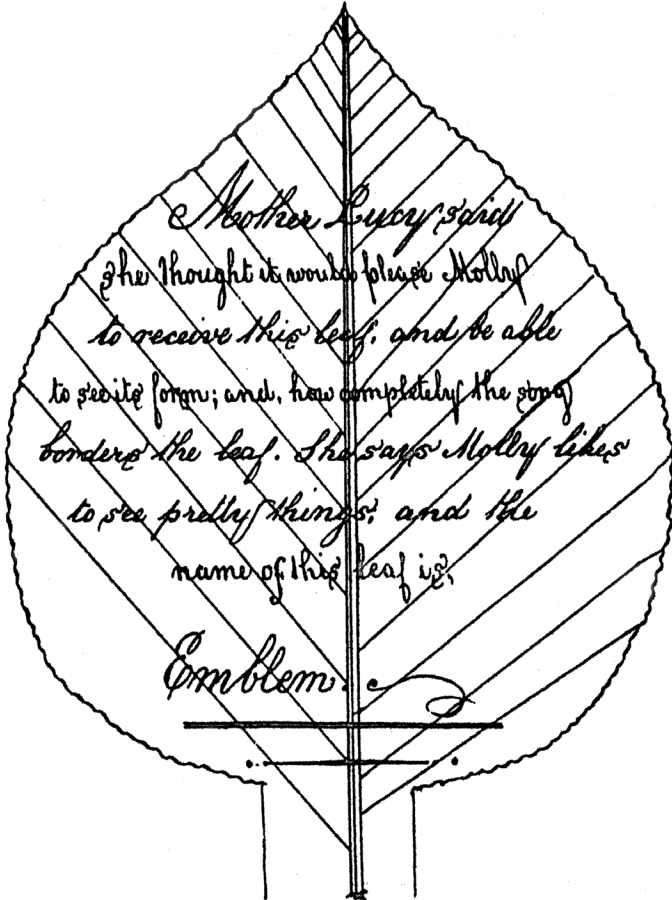 Mother Lucy said
she thought it would please Molly
to receive this leaf; and be able
to see its form; and, how completely the song
borders the leaf. She says Molly likes
to see pretty things; and the
name of this leaf is,
Emblem.